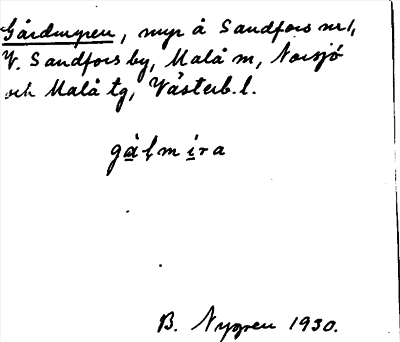 Gårdmyren, myr å Sandfors nr 1,
V. Sandfors by, Malå m, Norsjö
och Malå tg, Västerb. l.
gålmira
B. Nygren 1930.